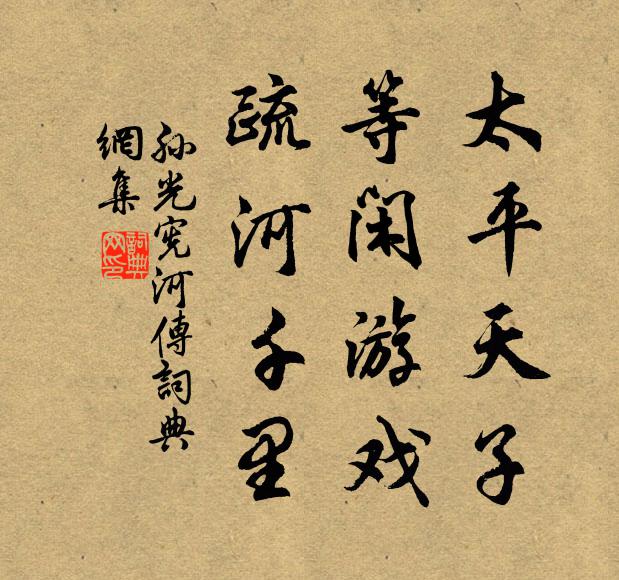 太平天子
等闲游戏
疏河千里
孙光宪河傳詞典
網集
詞典
网印